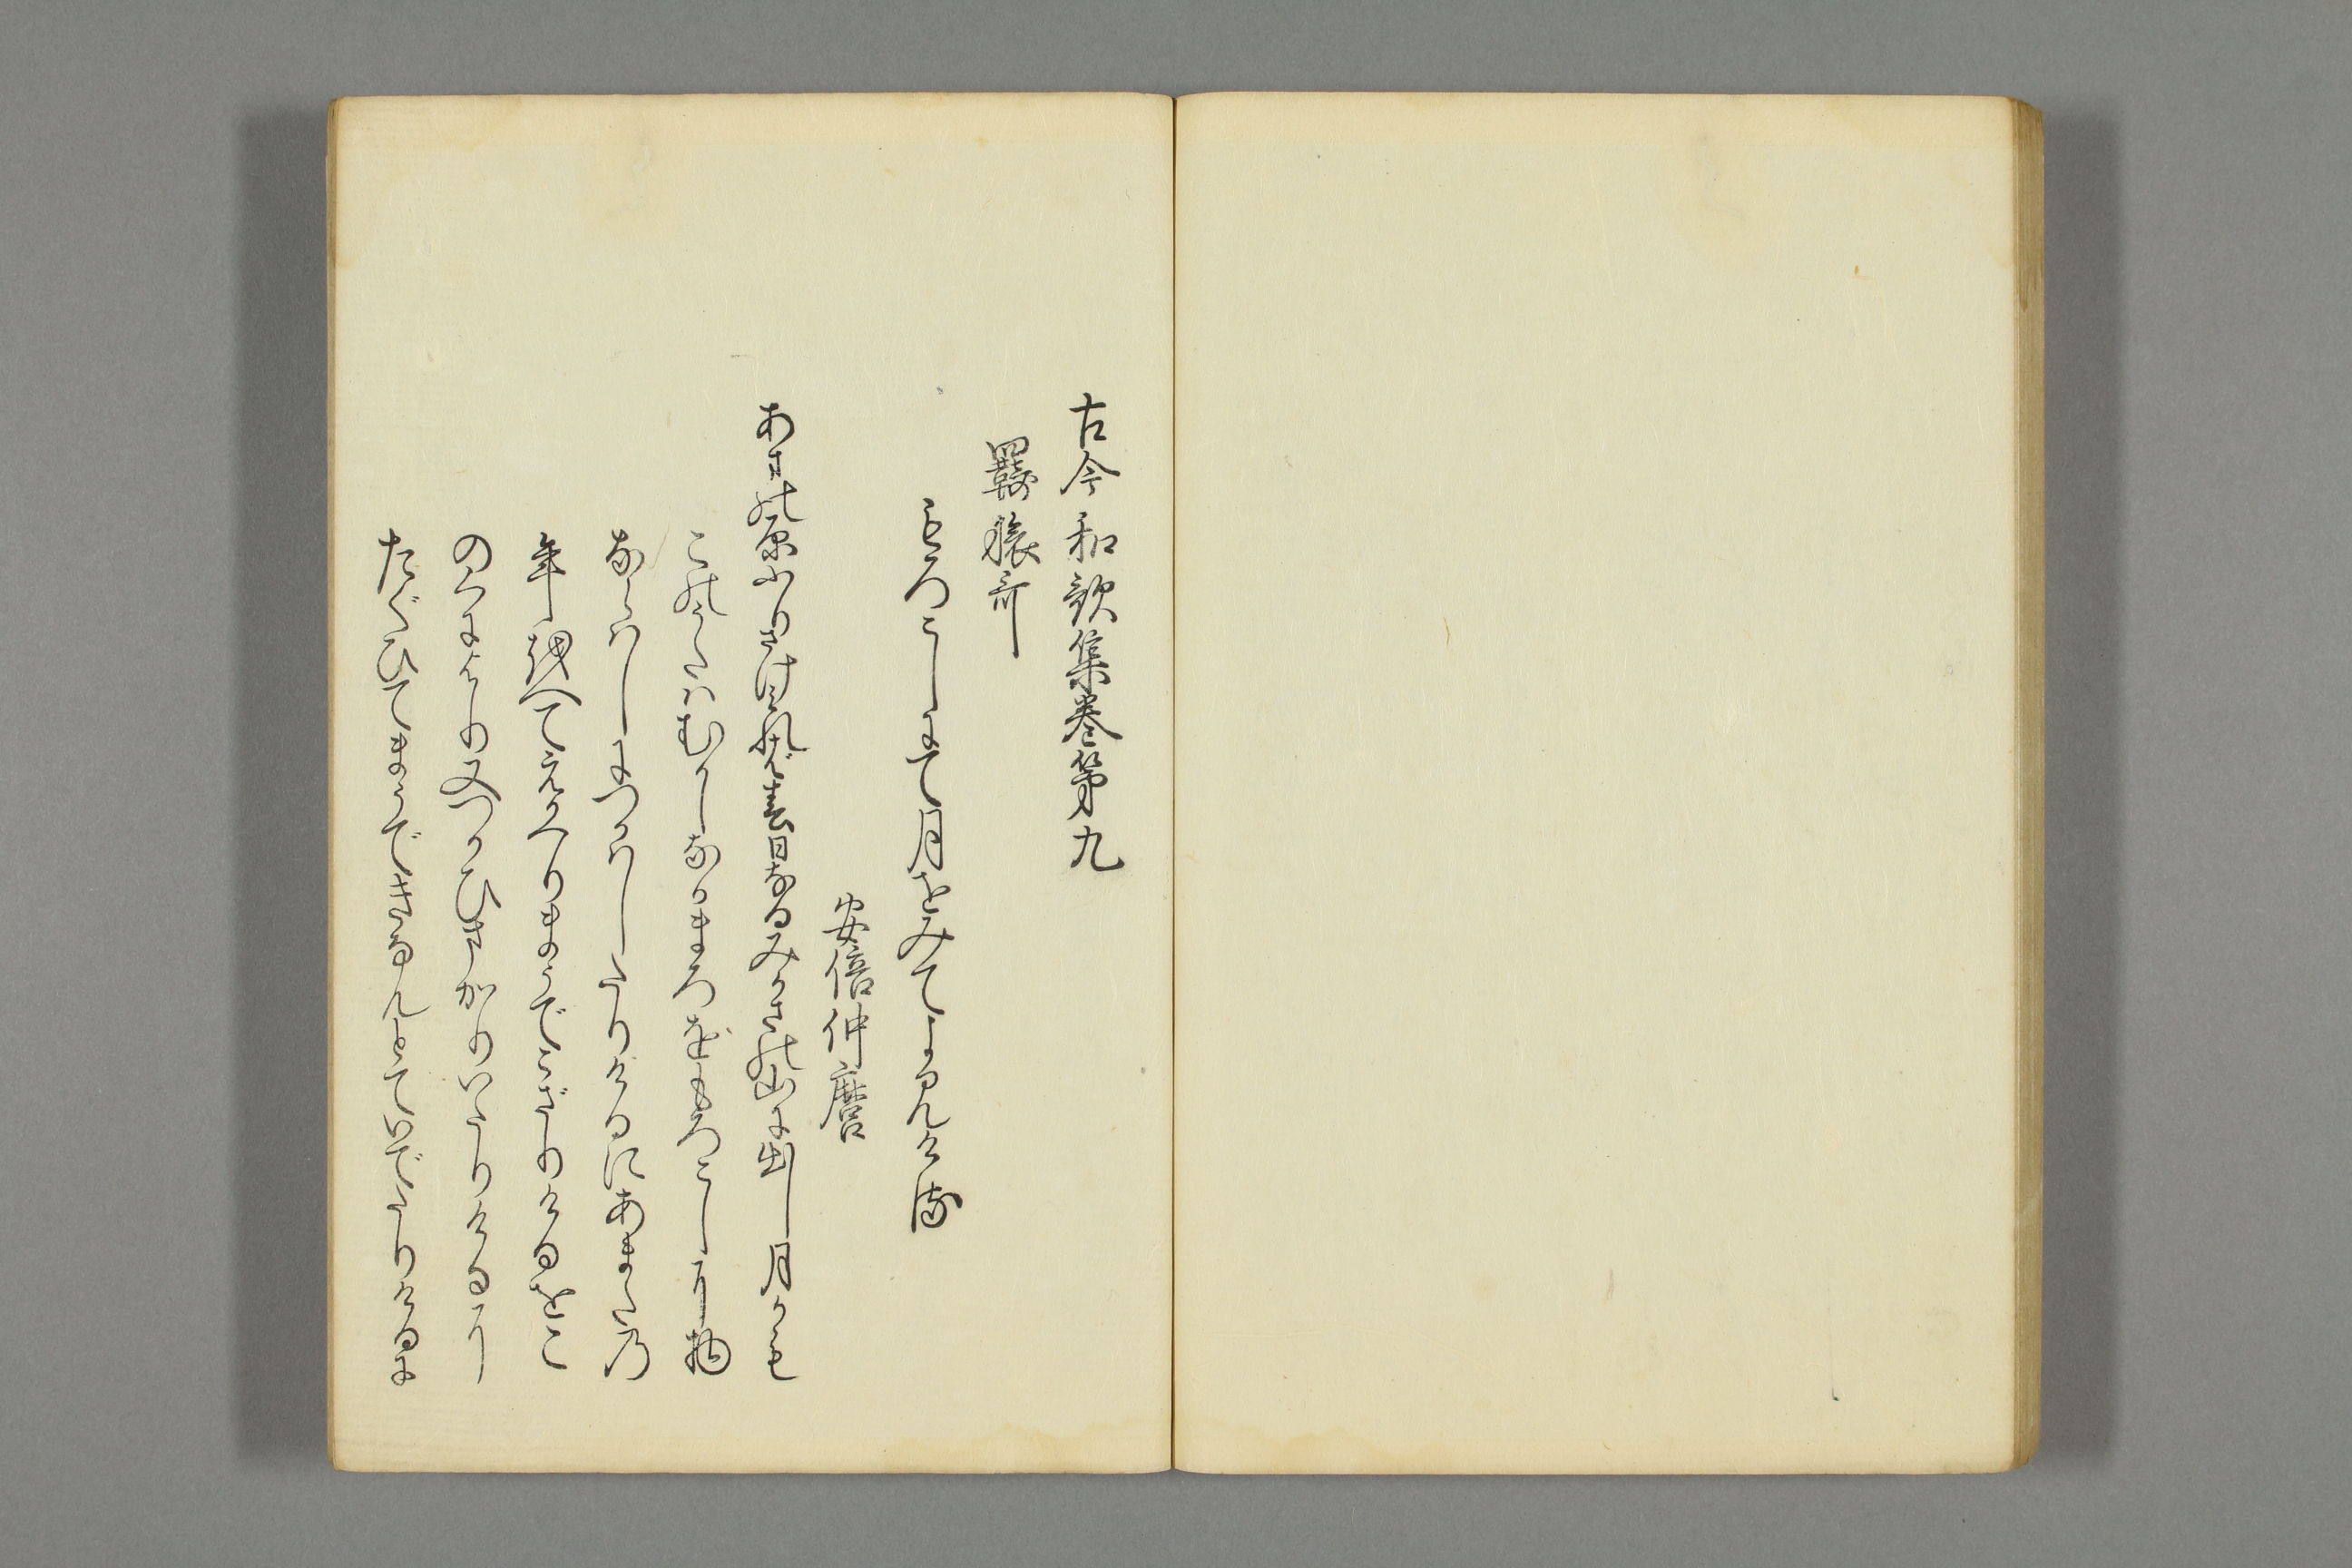 古今和歌集巻第九
羇旅哥
もろこしにて月をみてよみける
安倍仲麿
あまの原ふりさけみれば春日なるみかさの山に出し月かも
このうたはむかしなかまろをもろこしに物
ならはしにつかはしたりけるにあまたの
年をへてえかへりまうでこざりけるをこ
のくにより又つかひまかりいたりけるに
たぐひてまうできなんとていでたりけるに